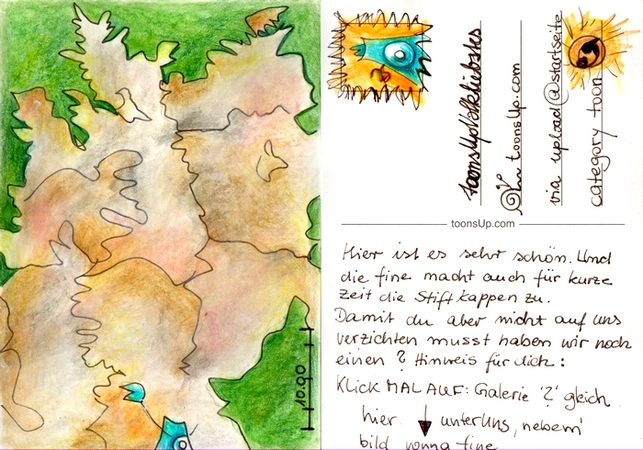 10.90
toonsUpVolkliebstes
toonsUp.com
via upload@startseite
category toon
toonsUp.com
Hier ist es sehr schön. Und
die fine macht auch für kurze
Zeit die Stiftkappen zu.
Damit du aber nicht auf uns
verzichten musst haben wir noch
einen ? Hinweis für dich:
KLICK MAL AUF: Galerie '2' gleich
hier unter uns, nebem'
bild vonna fine